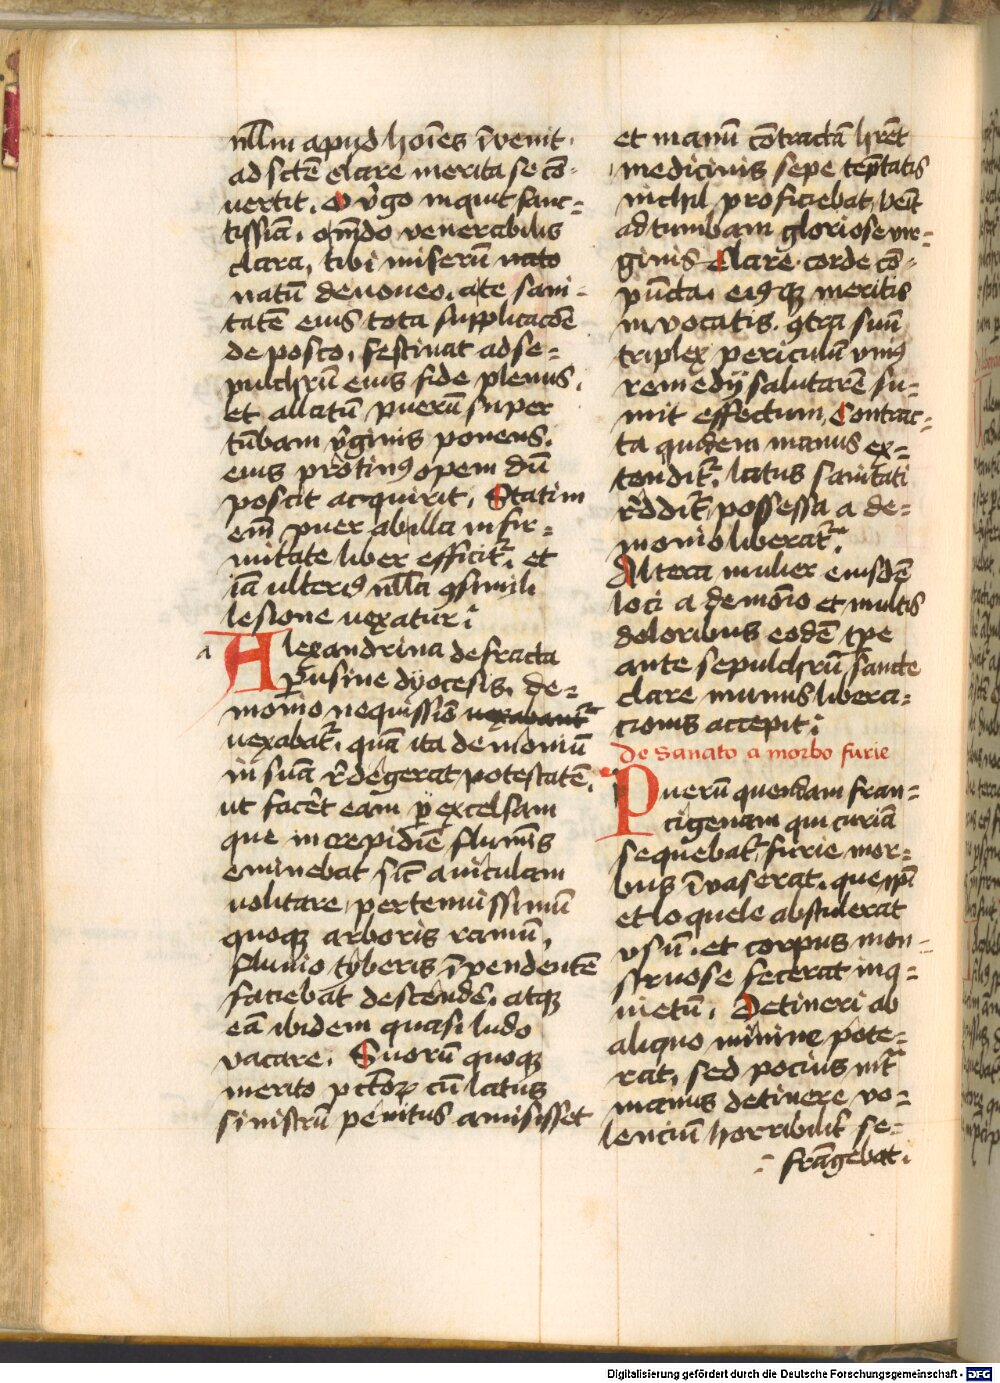 nll'm apud hoīes īvenit.
ad sctē clare merita se cō-
vertit. O v'go inquit sanc=
tissīa. om̄do venerabilis
clara, tibi miserū nato
natū devoveo. a te sani-
tatē eius tota supplicacōe
deposco, festinat ad se=
pulchrū eius fide plenus.
et allatū puerū super
tūbam v'ginis ponens.
eius protin9 opem dū
poscit acquirit. Statim
em̄ puer ab illa infir=
mitate liber efficit'. et
iā ulteri9 nll'a 9simili
lesione vexatur.
a
Alexandrina de fracta
p̲usine dyocesis. de=
monio nequissīo vexabant'
vexabat'. quā ita demoniū
in suā r'degerat potestatē.
ut facēt eam p̲ excelsam
que in crepidīe flumīs
eminebat sic̄ aviculam
volitare, pertenuissimū
quoq; arboris ramū,
fluvio tyberis īpendentē
faciebat descendē. atq;
eā ibidem quasi ludo
vacare. Suorū quoq;
merito pctōꝝ cū latus
sinistrū penitus amisisset
et manū cōtractā hrēt
medicinis sepe tēptatis
nichil proficiebat, vēit
ad tumbam gloriose vir=
ginis Clare. corde cō-
pūcta. ei9q; meritis
invocatis. 9tra suū
triplex periculū vni9
remedij salutarē su=
mit effectum, Contrac=
ta quidem manus ex=
tendit'. latus sanitati
r'ddit', possessa a de=
monio liberat'.
Altera mulier eiusdē
loci a demōio et multis
doloribus eodē tp̄e
ante sepulchrū sancte
clare munus libera=
cionis accepit.
De Sanato a morbo furie
Puerū quendam fran=
cigenam qui curiā
sequebat', furie mor=
bus īvaserat. que ip̄i
et loquele abstulerat
vsū. et corpus mon-
struose fecerat inq=
uietū. Detineri ab
aliquo minime pote=
rat, sed pocius int'
manus detinere vo=
lenciū horribilit' se=
= frāgebat.
Digitalisierung gefördert durch die Deutsche Forschungsgemeinschaft - DFG